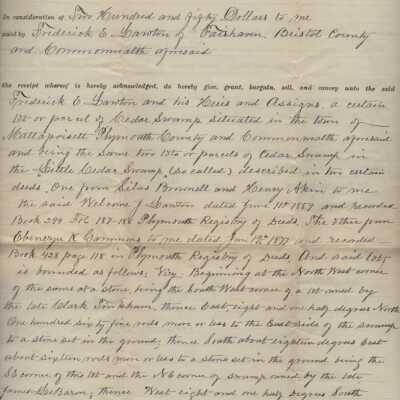 In consideration of Two Hundred and fifty Dollars to me
paid by Frederick E. Dawton of Fairhaven Bristol County
and Commonwealth aforesaid
the receipt whereof is hereby acknowledged, do hereby give, grant, bargain, sell, and convey unto the said
Frederick E. Dawton and his Heirs and Assigns, a certain
lot or parcel of Cedar Swamp situated in the town of
Mattapoisett Plymouth County and Commonwealth aforesaid
and being the same two lots or parcels of Cedar Swamp in
the Little Cedar Swamp (so called) described in two certain
deeds. One from Silas Brownell and Henry Akin to me
the said Welcome J Dawton dated June 11th 1859 and recorded
Book 299 Fol 187-188 Plymouth Registry of Deeds. The other from
Ebenezer K. Cammons to me dated Jan 12th 1877 and recorded
Book 428 page 118 in Plymouth Registry of Deeds. And said lots
is bounded as follows, Viz. Beginning at the North West corner
of the same at a stone being the South West corner of a lot owned by
the late Clark Tinkham, thence East, eight and one half degrees North
One hundred sixty five rods more or less to the East side of the swamp
to a stone set in the ground; thence South about eighteen degrees East
about sixteen rods more or less to a stone set in the ground being the
SE corner of this lot and the NE corner of swamp owned by the late
James LeBaron; thence West eight and one half degrees South